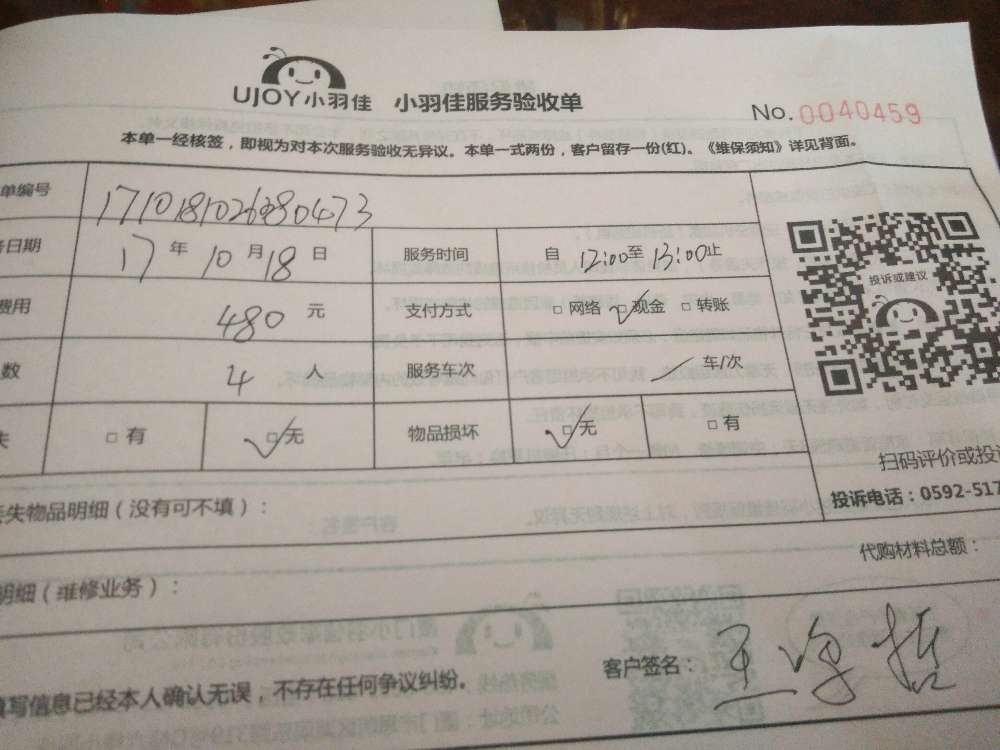 UJOY小羽佳 小羽佳服务验收单
No.0040459
本单一经核签，即视为对本次服务验收无异议。本单一式两份，客户留存一份(红)。《维保须知》详见背面。
单编号
日期 17 年 10 月 18 日 服务时间 自 12:00 至 13:00 止
投诉或建议
费用 480 元 支付方式 □ 网络 □ 现金 □ 转账
数 4 人 服务车次 车/次
失 □ 有 □ 无 物品损坏 □ 无 □ 有
扫码评价或投
投诉电话：0592-517
失物品明细（没有可不填）：
代购材料总额：
明细（维修业务）：
客户签名：
填写信息已经本人确认无误，不存在任何争议纠纷。